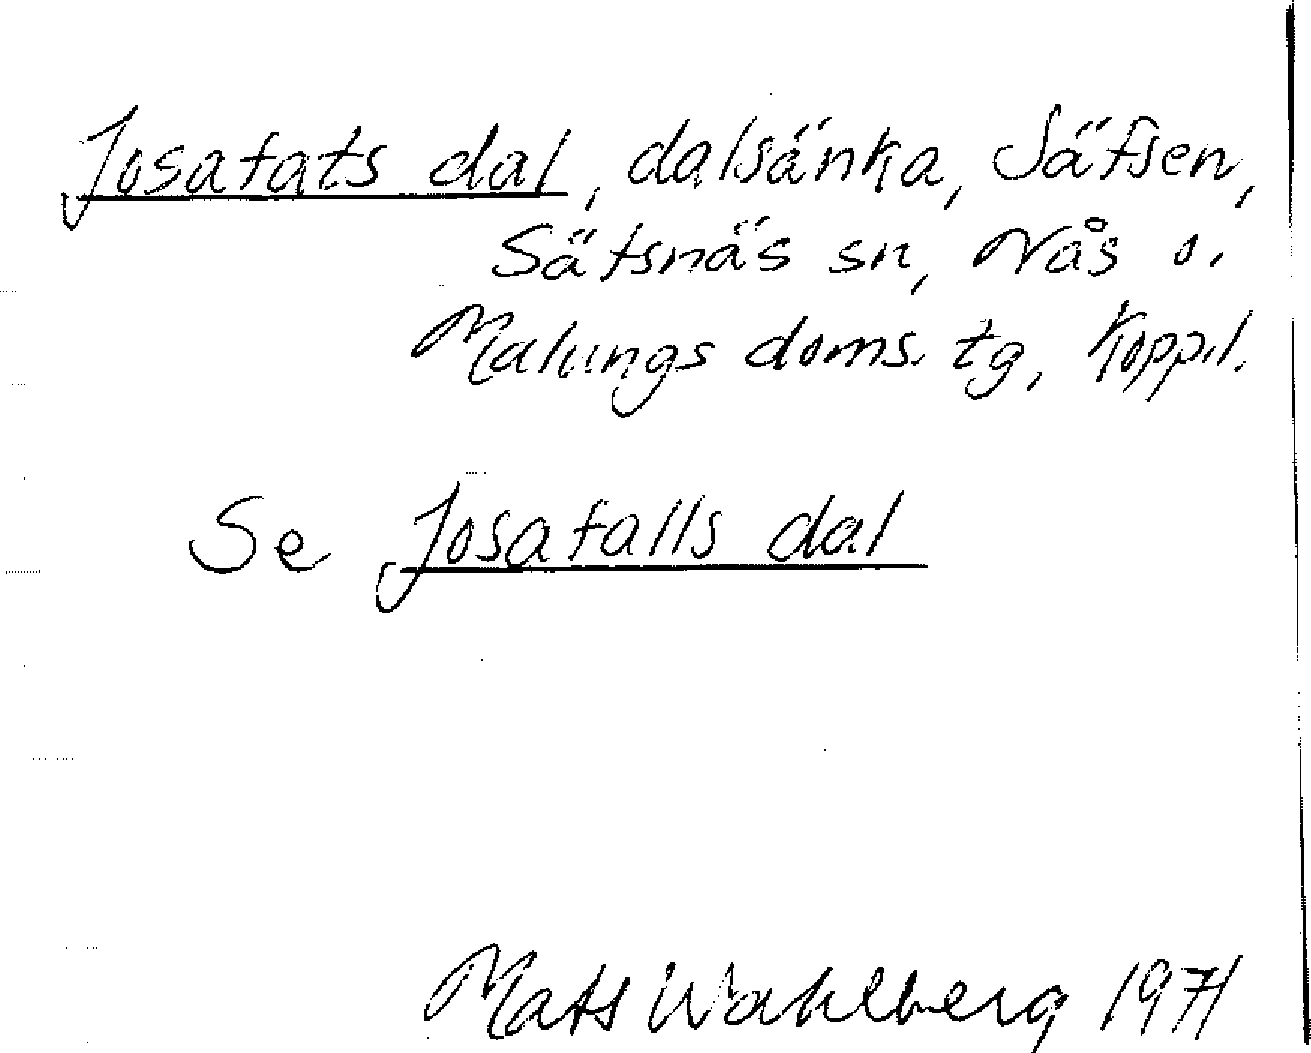 Josafats dal, dalsänka, Säfsen,
Säfsnäs sn, Nås o.
Malungs doms. tg, Kopp.l.
Se Josafalls dal
Mats Wahlberg 1971